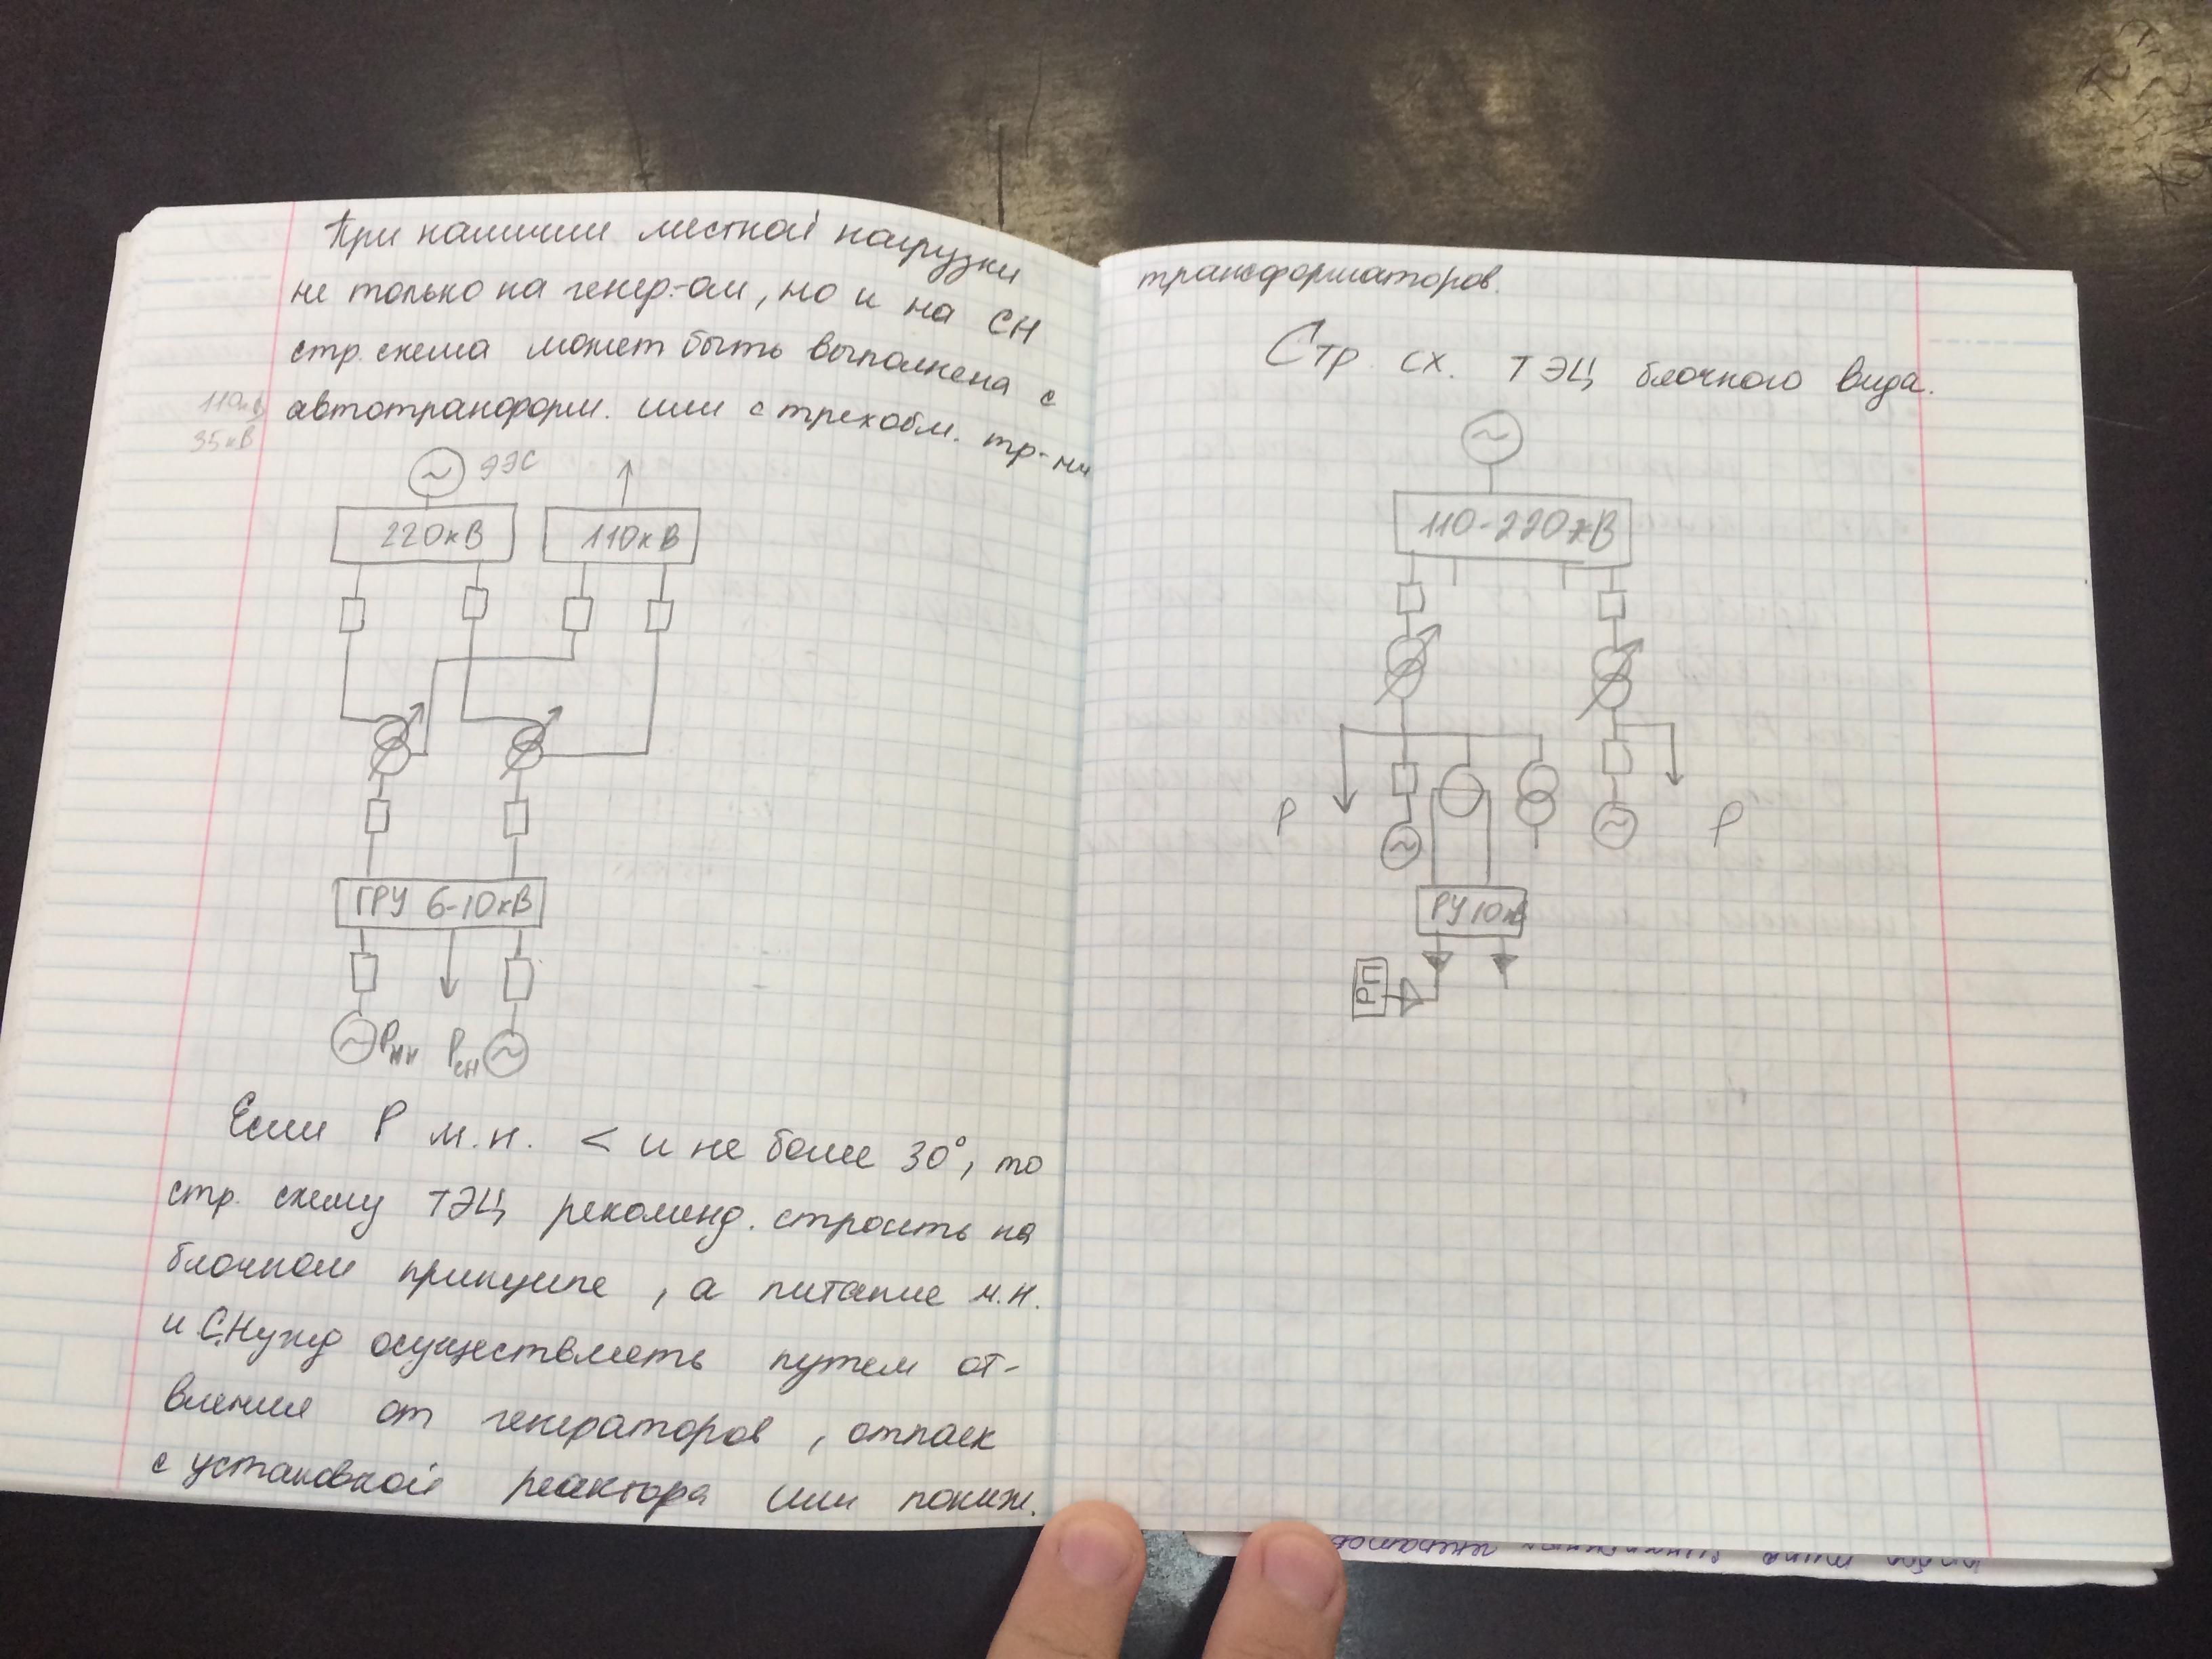 При наличии местной нагрузки
не только на генер.-ом, но и на СН
стр. схема может быть выполнена с
автотрансформ. или с трехобм. тр-ми
110кВ
35кВ
ЭЭС
220кВ
110кВ
ГРУ 6-10кВ
Рмн
Рсн
Если Р м.н. < и не более 30°, то
стр. схему ТЭЦ рекоменд. строить на
блочном принципе, а питание м.н.
и С.Нужд осуществлять путем от-
вления от генераторов, отпаек
с установкой реактора или пониж.
трансформаторов.
Стр. сх. ТЭЦ блочного вида.
110-220кВ
Р
Р
РУ 10кВ
РП
генераторов